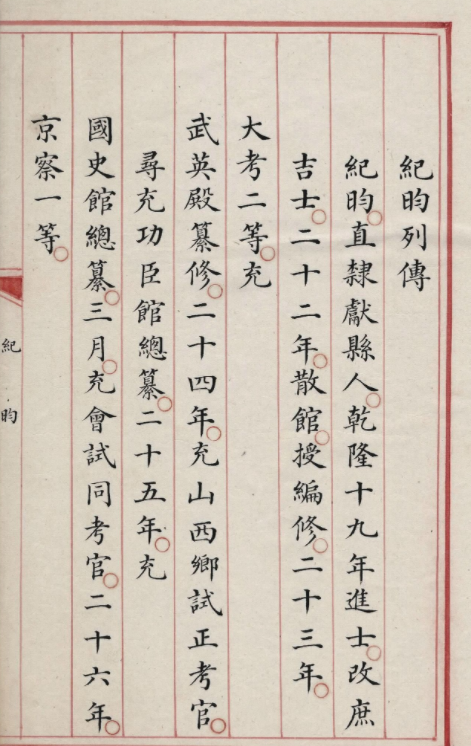 紀昀列傳
紀昀。直隸獻縣人。乾隆十九年進士。改庶
吉士。二十二年。散館。授編修。二十三年。
大考二等。充
武英殿纂修。二十四年。充山西鄉試正考官。
尋充功臣館總纂。二十五年。充
國史館總纂。三月。充會試同考官。二十六年。
京察一等。
紀昀